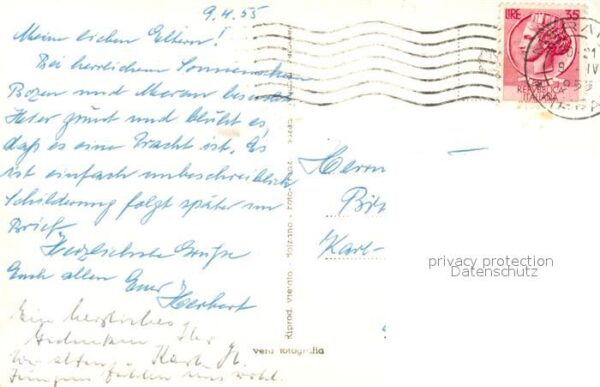 9.4.55
Meine lieben Eltern!
Bei herrlichem Sonnenschein
Bozen und Meran besucht
Hier grünt und blüht es,
daß es eine Pracht ist. Es
ist einfach unbeschreiblich
Schilderung folgt später im
Brief.
Herzlichste Grüße
Euch allen Euer
Herbert
Ein herzliches
Gedenken Ihr
Karl
Jungen fühlen uns wohl.
LIRE 35
REPUBBLICA
ITALIANA
9 IV
Herrn
Karl-
privacy protection
Datenschutz
Riprod. vietata - Bolzano
vera fotografia